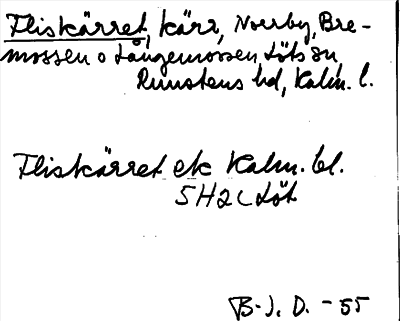 Fliskärret, kärr, Norrby, Bre-
mossen o Långemossen Löts sn,
Runstens hd, Kalm. l.
Fliskärret ek Kalm. bl.
5H2c Löt
B.J. D. - 55